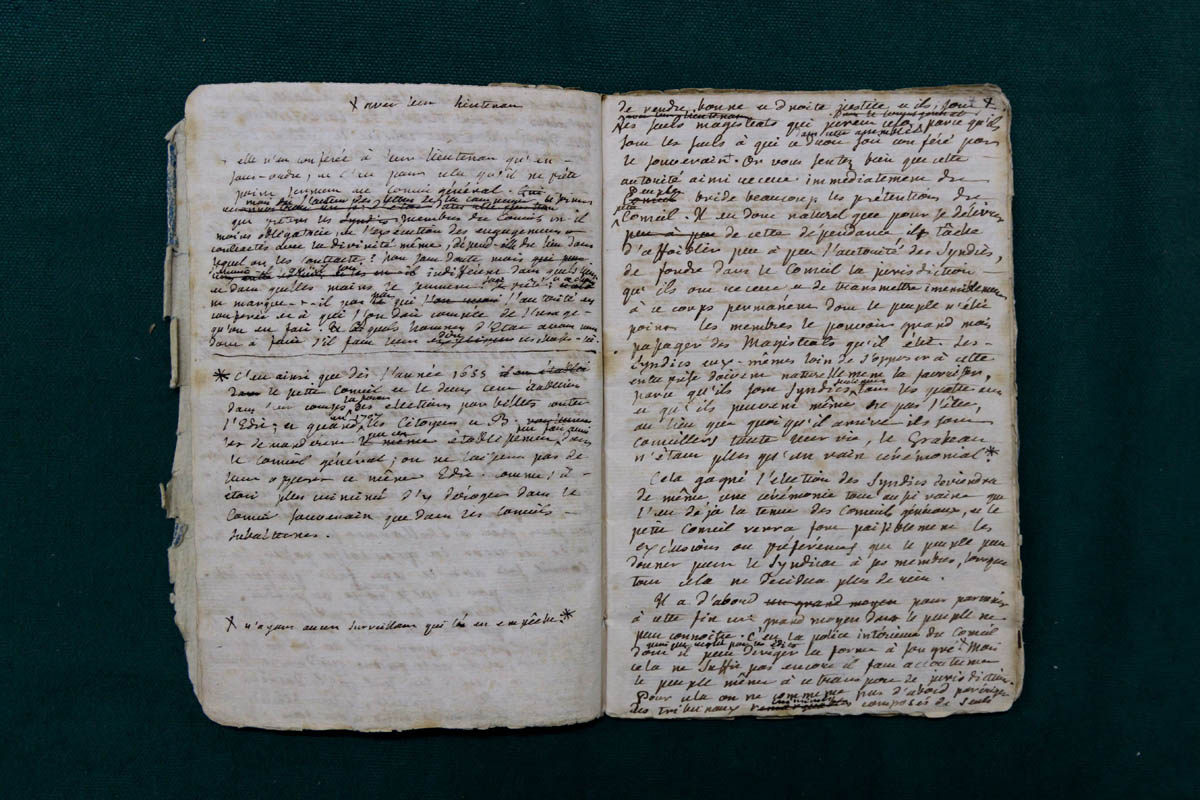 X avec leur Lieutenan
elle n'en conferée à leur Lieutenan qu'en-
sous-ordre, ce n'en pas cela qu'il ne prête
poin serment au Conseil général.
que prêtent les Syndics, membres du Conseil en-il
moins obligatoire, et l'execution des engagemens
contractés avec la divinité même, dépend-elle du lieu dans
lequel on les contracte? non sans doute, mais
indifferent dans quels lieux
et dans quelles mains le serment soit prêté,
ne marque-t-il pas qui l'autorité est
conferée et à qui l'on doit compte de l'usage-
qu'on en fait. A quels hommes d'Etat avons nous
donc à faire s'il faut leur dire ces choses-là.
* C'est ainsi que dès l'année 1655
le petit Conseil et le deux cent établirent
dans leur corps des elections par billets contre
l'Edit; et quand en 1707 les Citoyens et B.
demanderent que même établissement dans
le Conseil général; on ne laissa pas de
leur opposer ce même Edit comme s'il
étoit plus d'y déroger dans le
Conseil souverain que dans les Conseils-
subalternes.
X n'ayant aucun surveillant qui l'en empêche. *
de rendre bonne et droite justice, et ils sont X
les seuls magistrats qui jurent cela, parce qu'ils
sont les seuls à qui ce droit soit conféré par
dans cette assemblée
le souverain. Or vous sentez bien que cette
autorité ainsi receue immediatement du
peuple
bride beaucoup les prétentions du
petit
Conseil. Il est donc naturel que pour se délivrer
de cette dépendance il tâche
d'affoiblir peu à peu l'autorité des Syndics,
de fondre dans le Conseil la jurisdiction
qu'ils ont receue et de transmettre insensiblement
à ce corps permanent dont le peuple n'élit
point les membres le pouvoir grand mais
passager des Magistrats qu'il élit. Les-
Syndics eux-mêmes loin de s'opposer à cette
entreprise doivent naturellement la favoriser,
parce qu'ils sont Syndics seulement tous les quatre ans
et qu'ils peuvent même ne pas l'être,
au lieu que quoi qu'il arrive ils sont
conseillers toute leur vie, le Grabeau
n'étant plus qu'un vain cérémonial. *
Cela gagné l'élection des Syndics deviendra
de même une cérémonie tout aussi vaine que
l'est déja la tenue des Conseils généraux, et le
petit Conseil verra fort paisiblement les
exclusions ou préférences que le peuple peut
donner pour le Syndicat à ses membres, lorsque
tout cela ne décidera plus de rien.
Il a d'abord un grand moyen pour parvenir
à cette fin un grand moyen dont le peuple ne
peut connoitre. C'est la police intérieure du Conseil
quoique reglée par les Edits
dont il peut diriger la forme à son gré X Mais
cela ne suffit pas encore il faut accoutumer
le peuple même à ce transport de jurisdiction.
Pour cela on ne commence pas d'abord par ériger
des tribunaux composés de seuls